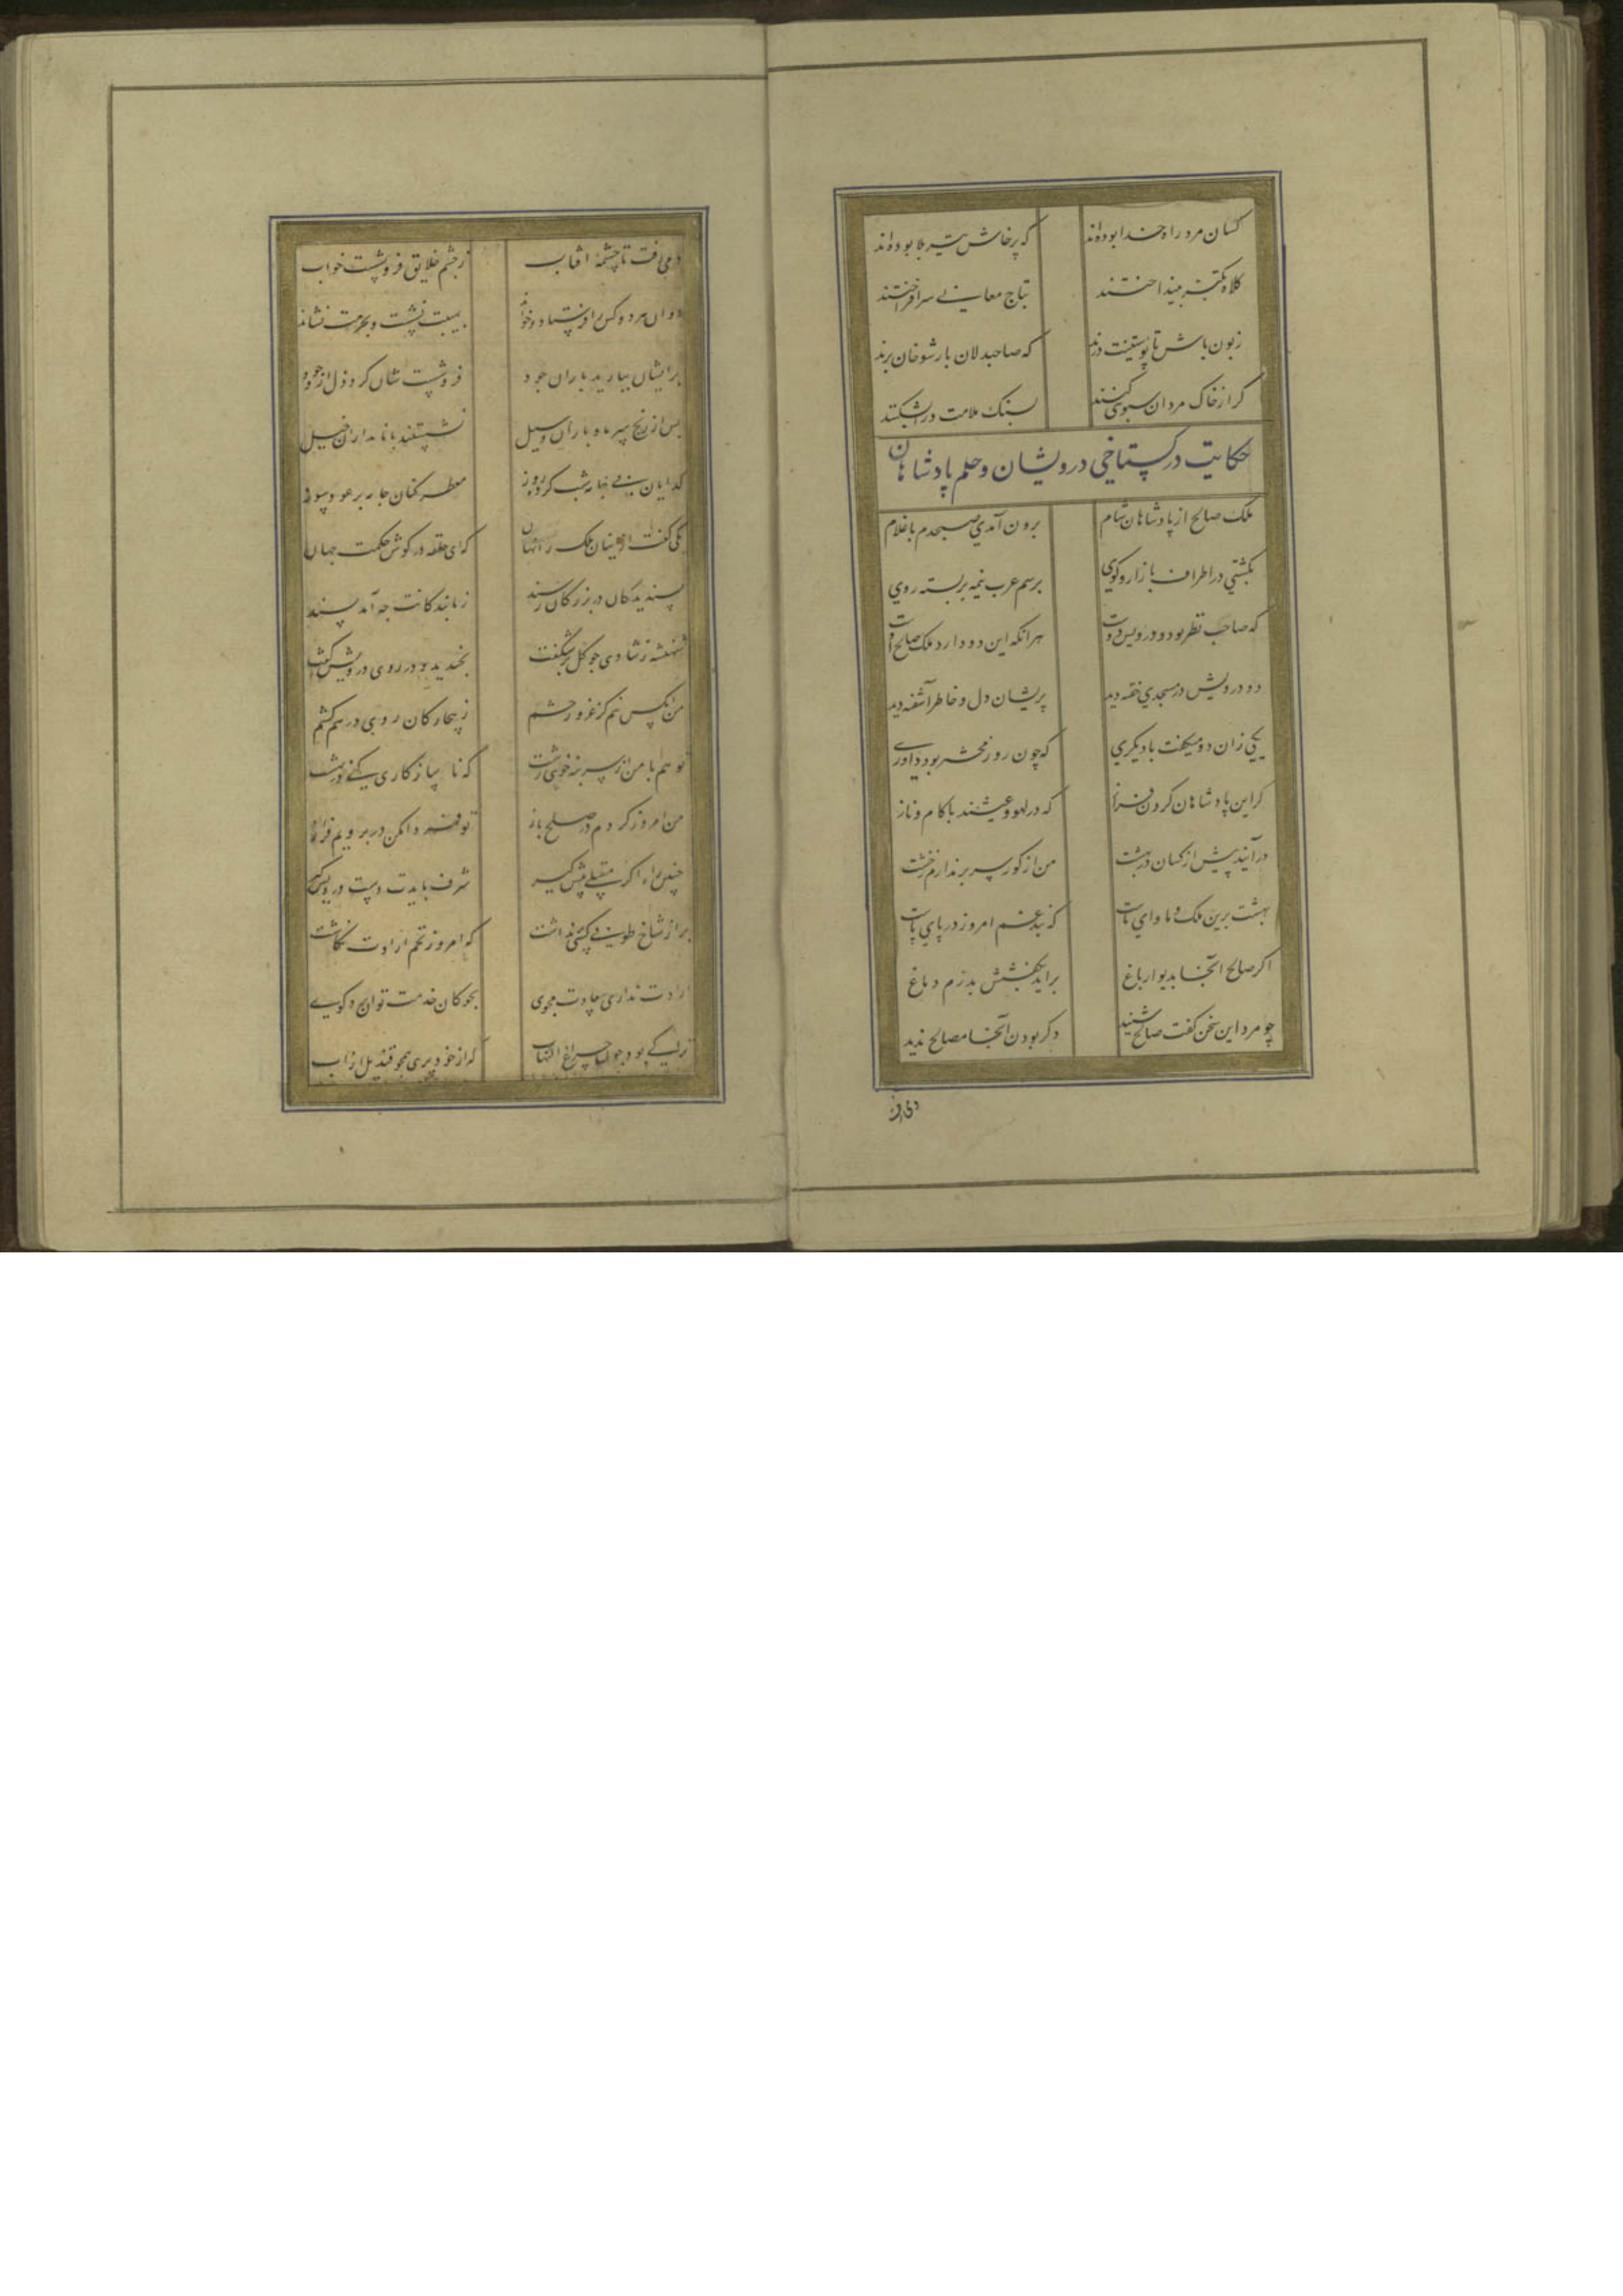 کسان مرد راه خدا بوده‌اند که برخاش تیر بلا بوده‌اند
کلاه تکبر بینداختند بتاج معانی سرافراختند
زبون باش تا پوستینت درند که صاحبدلان بار شوخان برند
کر از خاک مردان سبوی کنند بسنک ملامت درش بشکنند
حکایت در کستاخی درویشان و حلم پادشاهان
ملک صالح از پادشاهان شام برون آمدی صبحدم با غلام
بکشتی در اطراف بازار و کوی برسم عرب نیمه بر بسته روی
که صاحب نظر بود و درویش دوست هر انکه این دو دارد ملک صالح اوست
دو درویش در مسجدی خفته دید پریشان دل و خاطر آشفته دید
یکی زان دو میکفت با دیکری که چون روز محشر بود داوری
کر این پادشاهان کردن فراز که در لهو و عیشند با کام و ناز
درآیند پیش از کسان در بهشت من از کور سر بر ندارم ز خشت
بهشت برین ملک و ماوای ماست که بند غم امروز در پای ماست
اکر صالح آنجا بدیوار باغ براید بکفشش بدرم دماغ
چو مرد این سخن کفت صالح شنید دکر بودن آنجا مصالح ندید
دمی رفت تا چشمهٔ افتاب ز چشم خلایق فرو شست خواب
دوان هر دو کس را فرستاد و خواند بهیبت نشست و بحرمت نشاند
برایشان ببارید باران جود فرو شست شان کرد ذل از وجود
بس از رنج سرما و باران و سیل نشستند با نامداران خیل
کدایان بی جامه شب کرده روز معطر کنان جامه بر عود سوز
یکی کفت ازینان ملک را نهان که ای حلقه در کوش حکمت جهان
پسندیدکان در بزرکی رسند ز ما بندکانت چه آمد پسند
شهنشه ز شادی چو کل برشکفت بخندید و در روی درویش کفت
من آنکس نیم کز غرور حشم ز بیچارکان روی در هم کشم
تو هم با من از سر بنه خوی زشت که ناسازکاری کنی در بهشت
من امروز کردم در صلح باز تو فردا مکن در برویم فراز
چنین راه اکر مقبلی پیش کیر شرف بایدت دست درویش کیر
بر از شاخ طوبی کسی نداشت که امروز تخم ارادت نکاشت
ارادت نداری سعادت مجوی بجوکان خدمت توان برد کوی
ترا کی بود چون چراغ التهاب که از خود پری همچو قندیل از آب